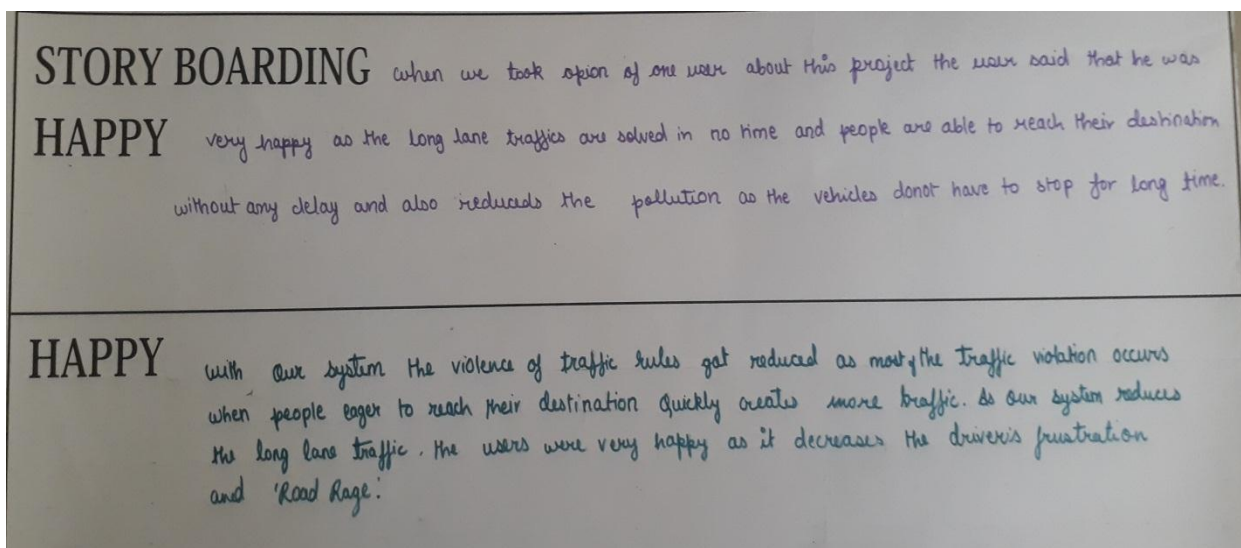 STORY BOARDING when we took opion of one user about this project the user said that he was
HAPPY very happy as the long lane traffics are solved in no time and people are able to reach their destination
without any delay and also reduceds the pollution as the vehicles donot have to stop for long time.
HAPPY with our system the violence of traffic rules got reduced as most of the traffic violation occurs
when people eager to reach their destination quickly creates more traffic. As our system reduces
the long lane traffic. the users were very happy as it decreases the driver's frustration
and 'Road Rage'.